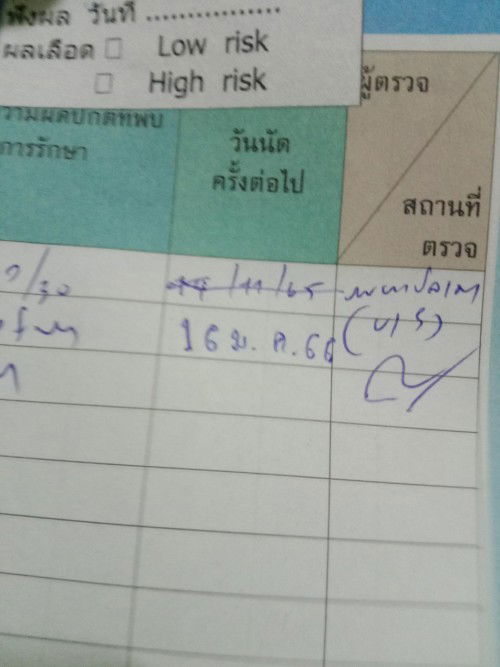 ฟังผล วันที่ ................
ผลเลือด □ Low risk
□ High risk
ความผิดปกติที่พบ
การรักษา
วันนัด
ครั้งต่อไป
ผู้ตรวจ
สถานที่
ตรวจ
/30
/11/65
16 ม.ค.66